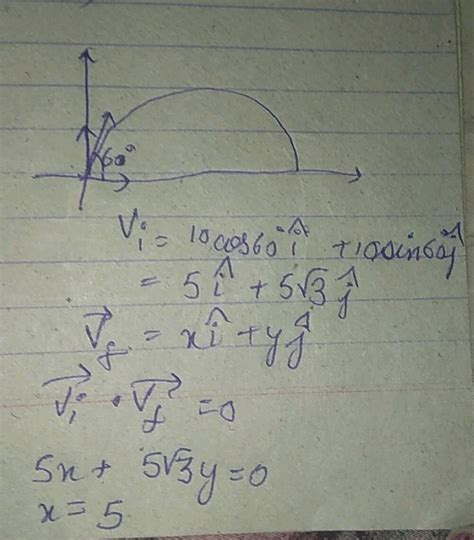 60°
Vi = 10cos60° î + 10sin60° ĵ
= 5 î + 5√3 ĵ
V⃗f = xî + yĵ
V⃗i · V⃗f = 0
5x + 5√3y = 0
x = 5